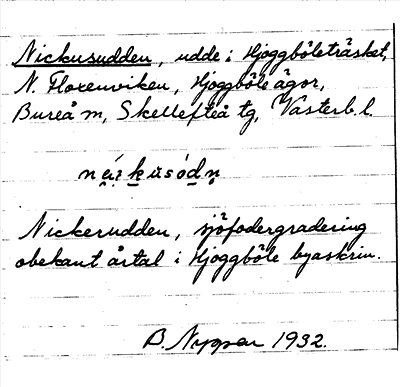 Nickusudden, udde i Hjoggböleträsket,
N. Floxenviken, Hjoggböle ägor,
Bureå m, Skellefteå tg, Västerb. l.
Nickerudden, sjöfodergradering
obekant årtal i Hjoggböle byaskrin.
B. Nyman 1932.